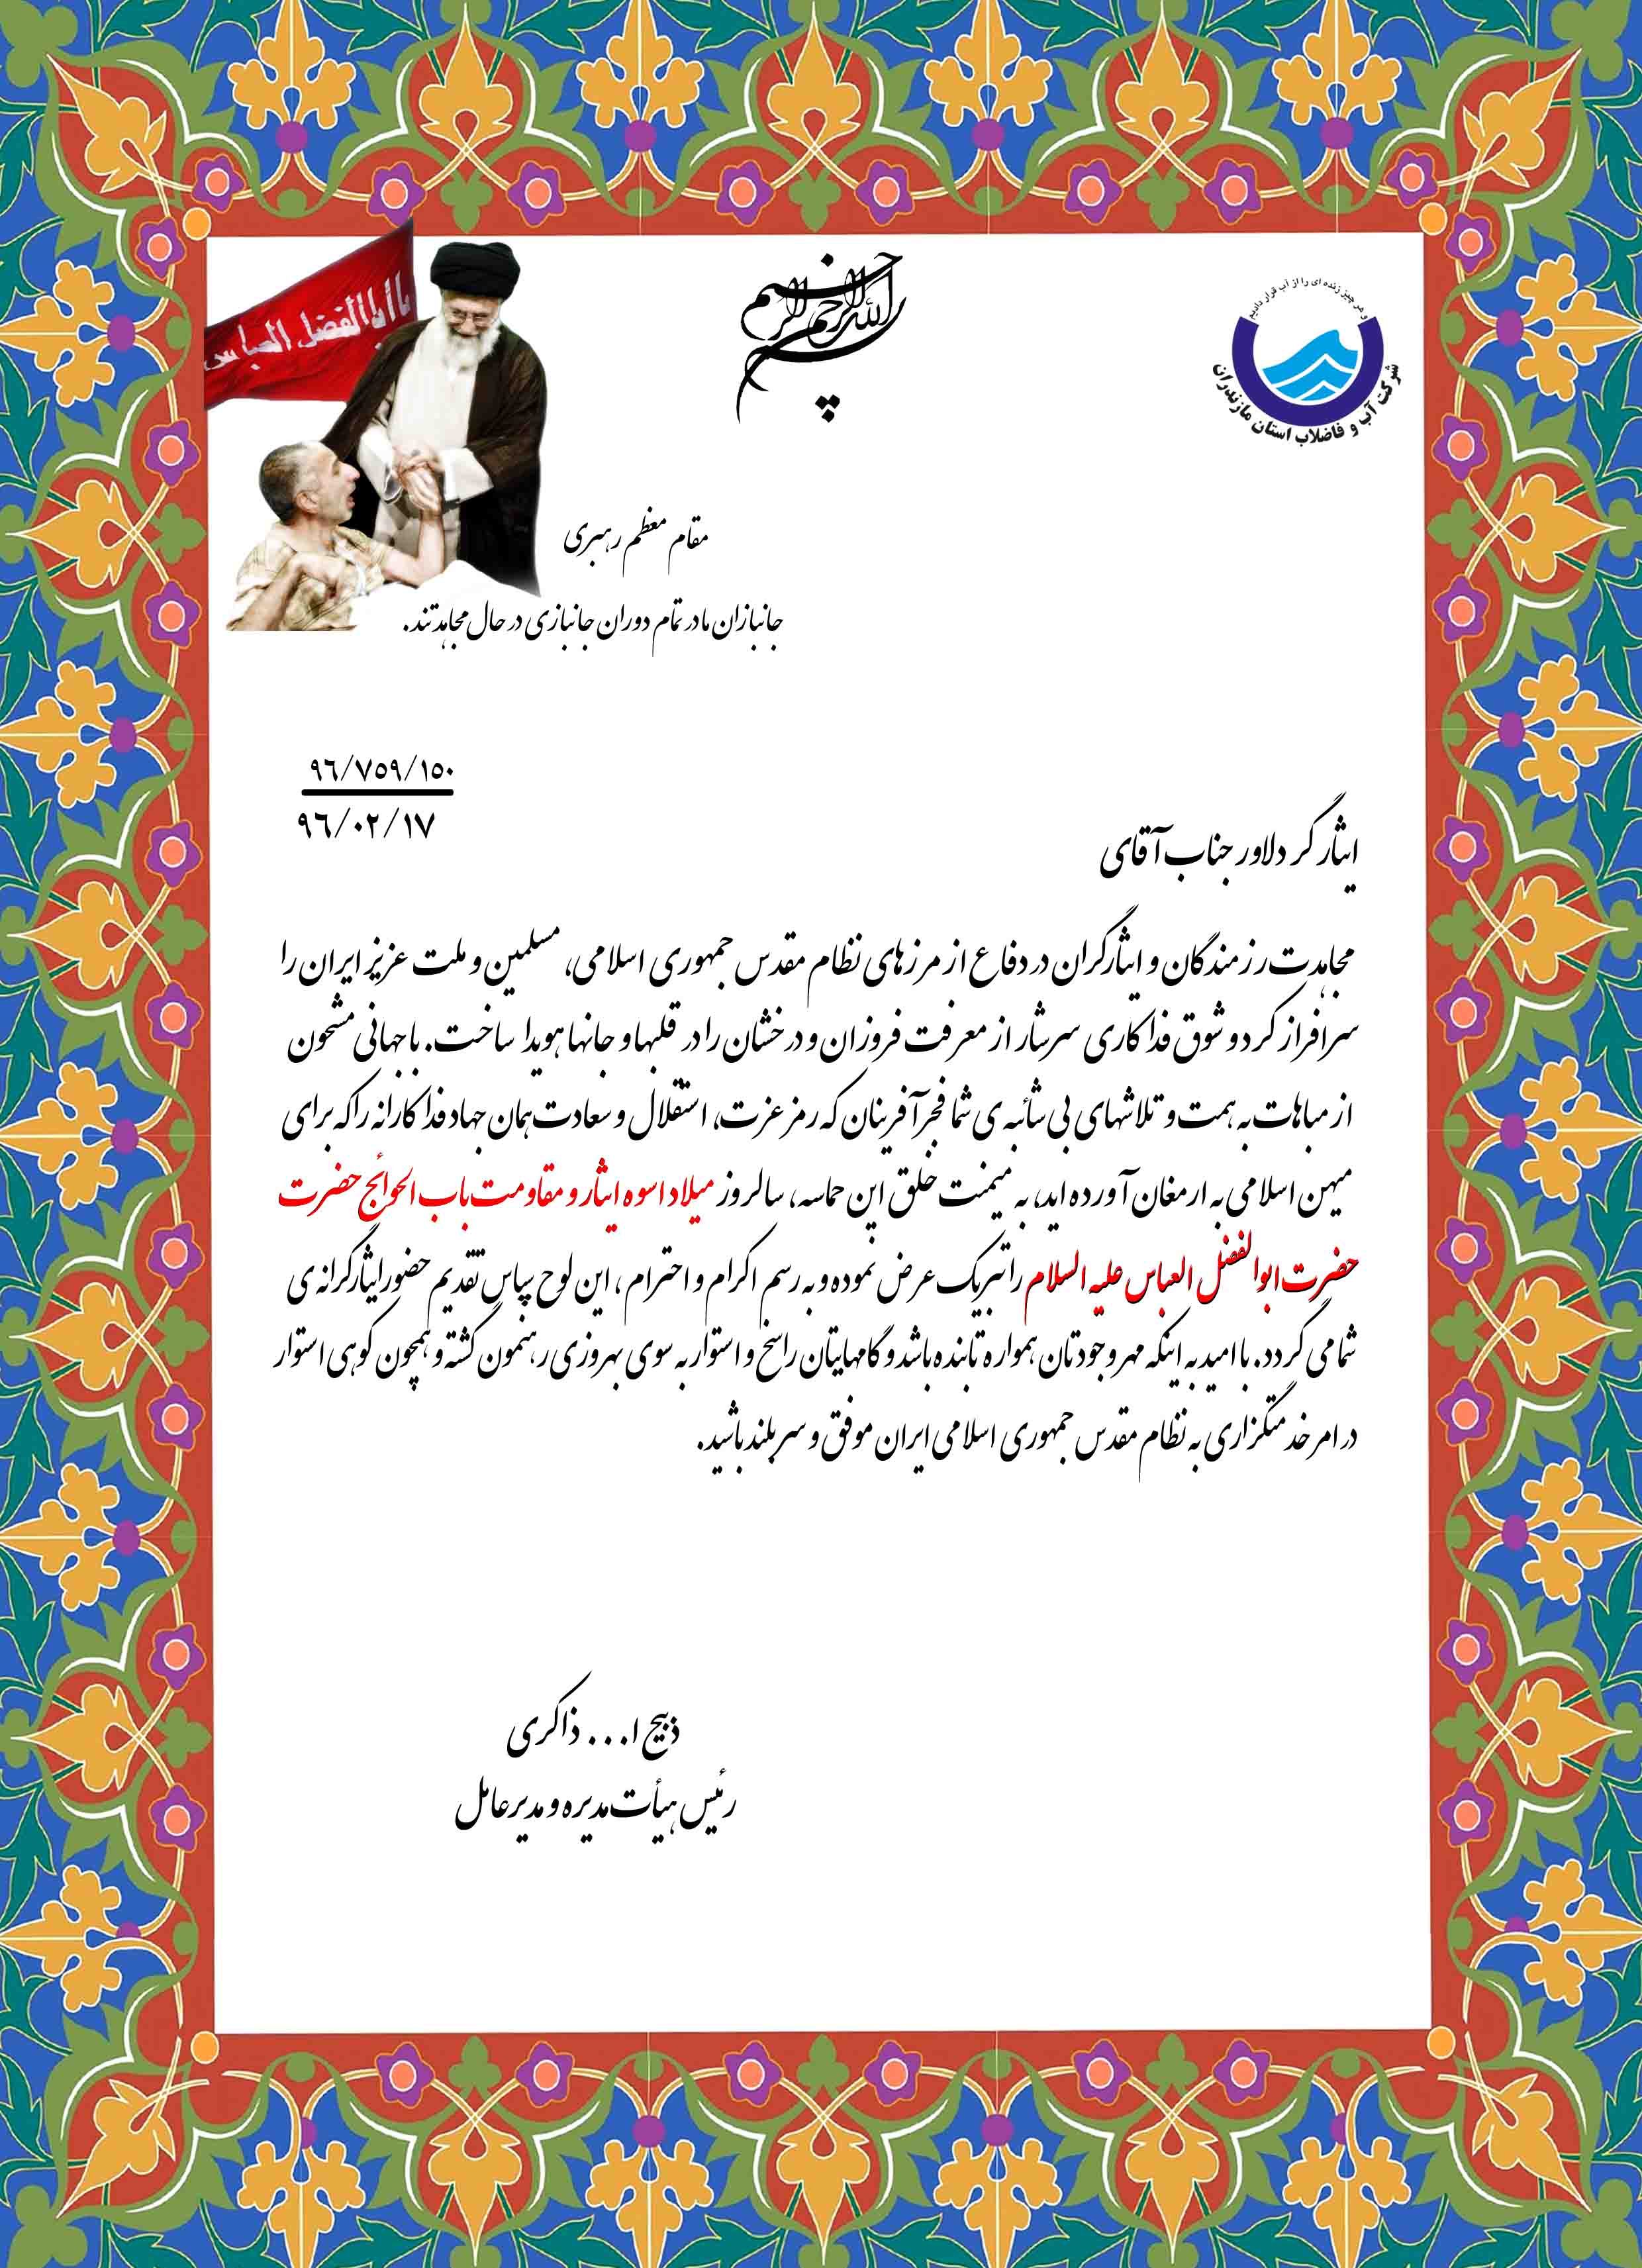 بسم الله الرحمن الرحیم
و هر چیز زنده ای را از آب قرار دادیم
شرکت آب و فاضلاب استان مازندران
یا اباالفضل العباس
مقام معظم رهبری
جانبازان ما در تمام دوران جانبازی در حال مجاهدتند.
۹۶/۷۵۹/۱۵۰
۹۶/۰۲/۱۷
ایثارگر دلاور جناب آقای
مجاهدت رزمندگان و ایثارگران در دفاع از مرزهای نظام مقدس جمهوری اسلامی، مسلمین و ملت عزیز ایران را
سرافراز کرد و شوق فداکاری سرشار از معرفت فروزان و درخشان را در قلبها و جانها هویدا ساخت. با جهانی مشحون
از مباهات به همت و تلاشهای بی شائبه ی شما فجرآفرینان که رمز عزت، استقلال و سعادت همان جهاد فداکارانه را که برای
میهن اسلامی به ارمغان آورده اید، به میمنت خلق این حماسه، سالروز میلاد اسوه ایثار و مقاومت باب الحوائج حضرت
حضرت ابوالفضل العباس علیه السلام را تبریک عرض نموده و به رسم اکرام و احترام، این لوح سپاس تقدیم حضور ایثارگرانه ی
شما می گردد. با امید به اینکه مهر وجودتان همواره تابنده باشد و گامهایتان راسخ و استوار به سوی بهروزی رهنمون گشته و همچون کوهی استوار
در امر خدمتگزاری به نظام مقدس جمهوری اسلامی ایران موفق و سربلند باشید.
ذبیح ا... ذاکری
رئیس هیأت مدیره و مدیرعامل